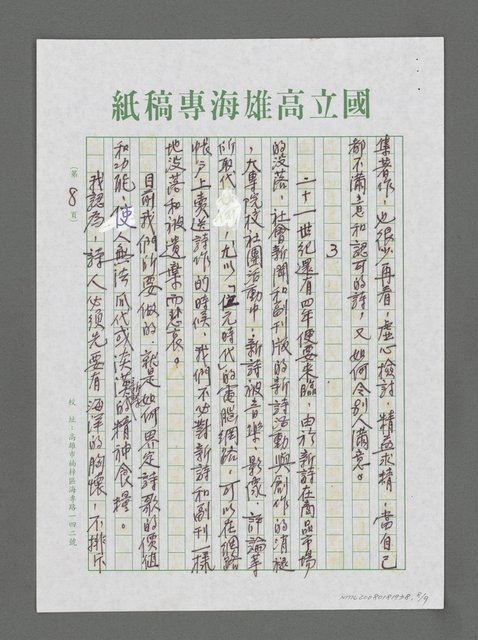 國立高雄海專稿紙
集著作，也很少再看，虛心檢討，精益求精，當自己
都不滿意和認可的詩，又如何令別人滿意。
3
二十一世紀還有四年便要來臨，由於新詩在商品市場
的沒落，社會新聞和副刊版的新詩活動與創作的消極
，大專院校社團活動中，新詩被音樂、影像、評論等
所取代，九以「位元時代」的電腦網路，可以在網路
帳戶上傳送詩作的時候，我們不必對新詩和副刊一樣
地沒落和被遺棄而悲哀。
目前我們所要做的，就是如何界定詩歌的價值
和功能，使人無法取代或淡薄詩歌的精神食糧。
我認為，詩人必須先要有海洋的胸懷，不排斥
（第8頁）
校址：高雄市楠梓區海專路一四二號
NMTL20080181938, 8/9